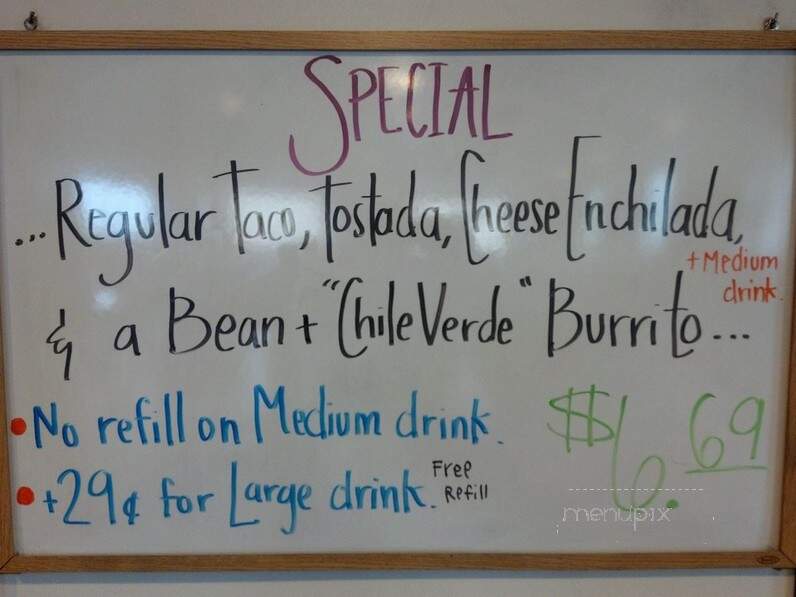 SPECIAL
...Regular Taco, Tostada, Cheese Enchilada,
+Medium
drink.
& a Bean + "Chile Verde" Burrito...
• No refill on Medium drink.
$6.69
• +29¢ for Large drink. Free
Refill
menupix